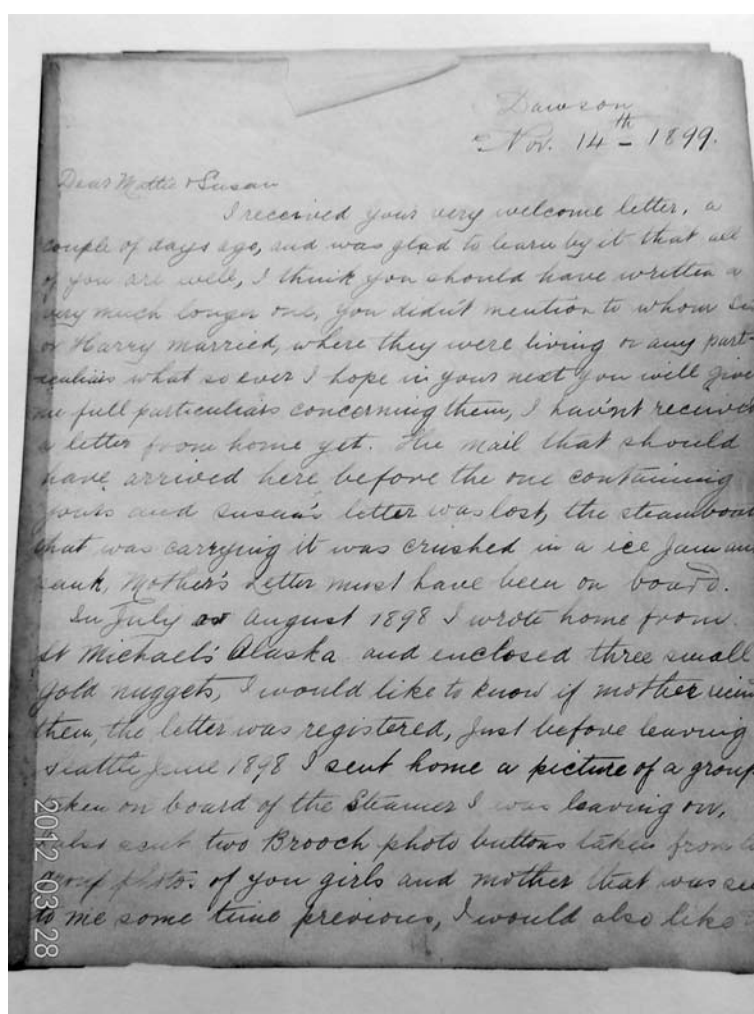 Dawson
Nov. 14th - 1899.
Dear Mattie & Susan
I received your very welcome letter, a
couple of days ago, and was glad to learn by it that all
of you are well, I think you should have written a
very much longer one, you didn't mention to whom
or Harry married, where they were living or any part-
iculiars what so ever I hope in your next you will give
me full particuliars concerning them, I hav'nt receiv
a letter from home yet. The mail that should
have arrived here before the one containing
yours and Susan's letter was lost, the steamboat
that was carrying it was crushed in a ice Jam an
sank, Mother's Letter must have been on board.
In July or August 1898 I wrote home from
St Michael's Alaska and enclosed three small
gold nuggets, I would like to know if mother
them, the letter was registered, Just before leaving
Seattle June 1898 I sent home a picture of a group
taken on board of the Steamer I was leaving on,
also sent two Brooch photo buttons taken from
group photo. of you girls and mother that was se
to me some time previous, I would also like
2012 03 28